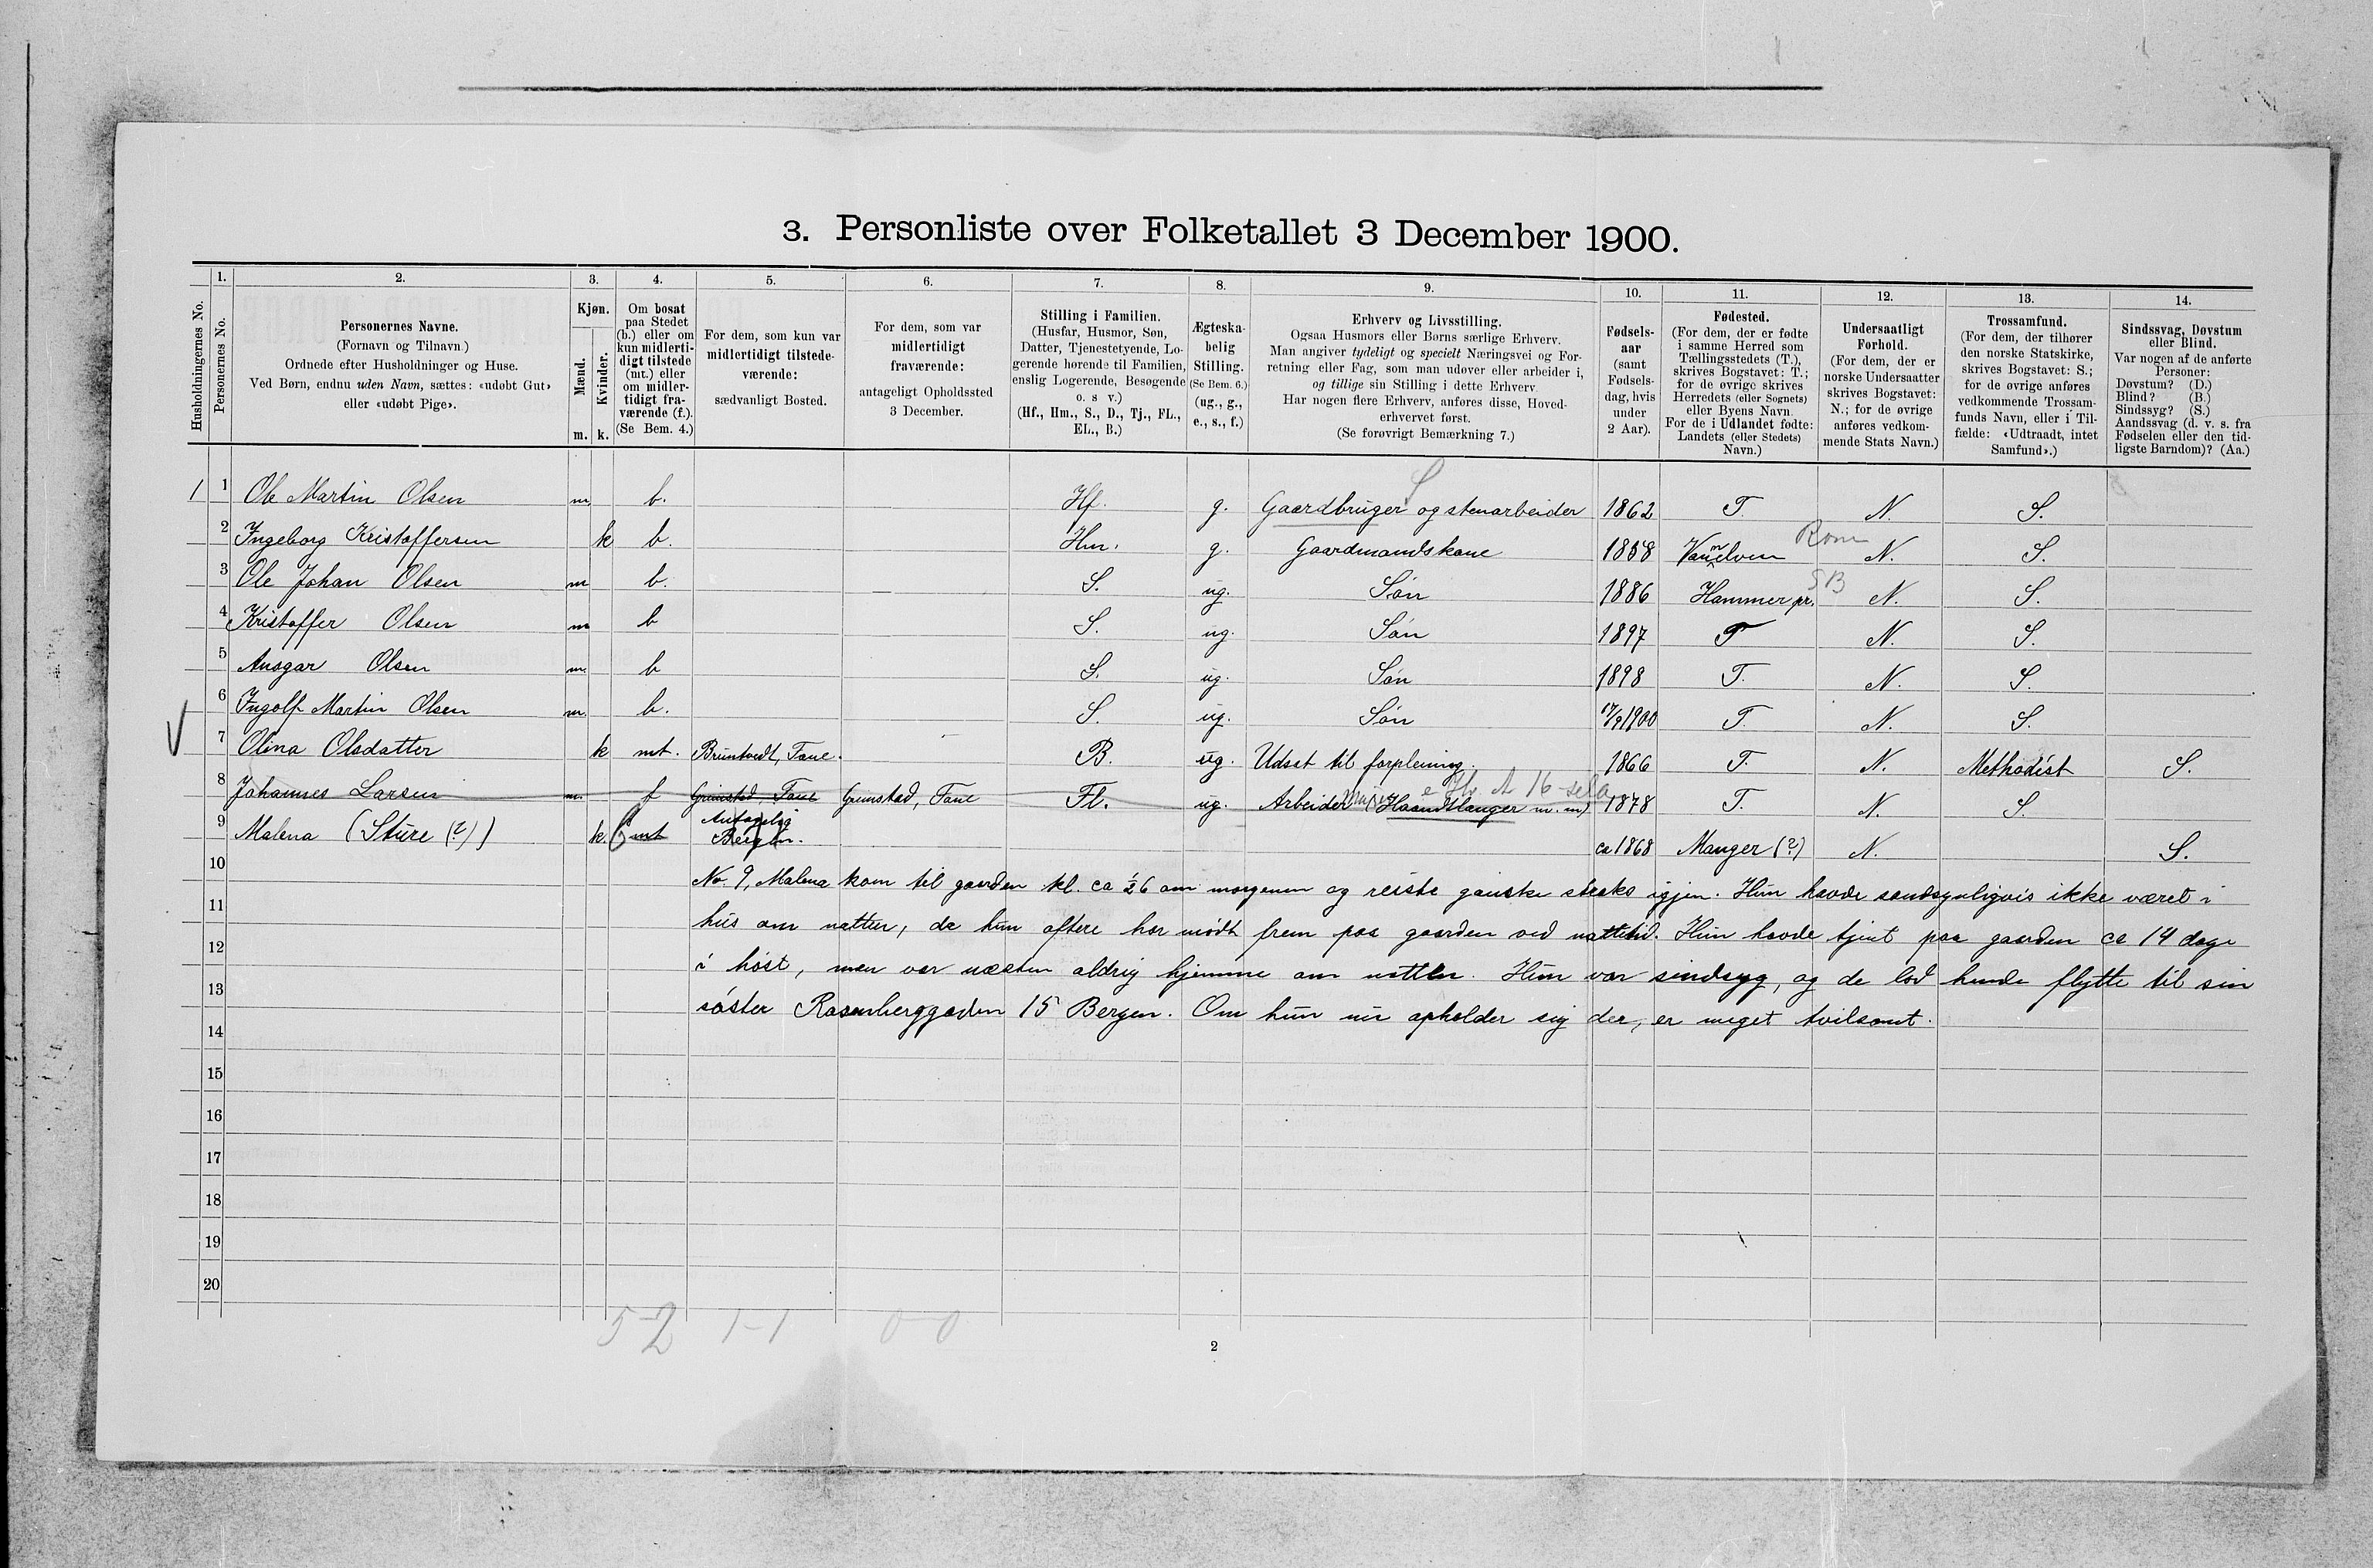 3. Personliste over Folketallet 3 December 1900.
1. 2. 3. 4. 5. 6. 7. 8. 9. 10. 11. 12. 13. 14.
Husholdningernes No.
Personernes No.
Personernes Navne.
(Fornavn og Tilnavn.)
Ordnede efter Husholdninger og Huse.
Ved Børn, endnu uden Navn, sættes: «udøbt Gut»
eller «udøbt Pige».
Kjøn.
Mænd.
Kvinder.
m. k.
Om bosat
paa Stedet
(b.) eller om
kun midlerti-
digt tilstede
(mt.) eller
om midler-
tidigt fra-
værende (f.).
(Se Bem. 4.)
For dem, som kun var
midlertidigt tilstede-
værende:
sædvanligt Bosted.
For dem, som var
midlertidigt
fraværende:
antageligt Opholdssted
3 December.
Stilling i Familien.
(Husfar, Husmor, Søn,
Datter, Tjenestetyende, Lo-
gerende hørende til Familien,
enslig Logerende, Besøgende
o. s v.)
(Hf., Hm., S., D., Tj., FL.,
EL., B.)
Ægteska-
belig
Stilling.
(Se Bem. 6.)
(ug., g.,
e., s., f.)
Erhverv og Livsstilling.
Ogsaa Husmors eller Børns særlige Erhverv.
Man angiver tydeligt og specielt Næringsvei og For-
retning eller Fag, som man udøver eller arbeider i,
og tillige sin Stilling i dette Erhverv.
Har nogen flere Erhverv, anføres disse, Hoved-
erhvervet først.
(Se forøvrigt Bemærkning 7.)
Fødsels-
aar
(samt
Fødsels-
dag, hvis
under
2 Aar).
Fødested.
(For dem, der er fødte
i samme Herred som
Tællingsstedets (T.),
skrives Bogstavet: T.;
for de øvrige skrives
Herredets (eller Sognets)
eller Byens Navn.
For de i Udlandet fødte:
Landets (eller Stedets)
Navn.)
Undersaatligt
Forhold.
(For dem, der er
norske Undersaatter
skrives Bogstavet:
N.; for de øvrige
anføres vedkom-
mende Stats Navn.)
Trossamfund.
(For dem, der tilhører
den norske Statskirke,
skrives Bogstavet: S.;
for de øvrige anføres
vedkommende Trossam-
funds Navn, eller i Til-
fælde: «Udtraadt, intet
Samfund».)
Sindssvag, Døvstum
eller Blind.
Var nogen af de anførte
Personer:
Døvstum? (D.)
Blind? (B.)
Sindssyg? (S.)
Aandssvag (d. v. s. fra
Fødselen eller den tid-
ligste Barndom)? (Aa.)
1 1 Ole Martin Olsen m b. Hf. g. Gaardbruger og stenarbeider 1862 T. N. S.
2 Ingeborg Kristoffersen k b. Hm. g. Gaardmandskone 1858 Vannelven Rom N. S.
3 Ole Johan Olsen m b. S. ug. Søn 1886 Hammer pr. SB N. S.
4 Kristoffer Olsen m b S. ug. Søn 1897 T N. S.
5 Ansgar Olsen m. b S. ug. Søn 1898 T. N. S.
6 Ingolf Martin Olsen m. b. S. ug. Søn 17/9 1900 T. N. S.
7 Olina Olsdatter k mt. Bruntvedt, Fane. B. ug. Udsat til forpleining. 1866 T. N. Methodist S.
8 Johannes Larsen m. f Grimstad, Fane Grimstad, Fane Fl. ug. Arbeider (Haandtlanger m. m) 1878 T. N. S.
9 Malena (Sture (?)) k. mt Antagelig Bergen. ca 1868 Manger (?) N. S.
10 No. 9, Malena kom til gaarden kl. ca ½6 om morgenen og reiste ganske straks igjen. Hun havde sandsynligvis ikke været i
11 hus om natten, da hun oftere har mødt frem paa gaarden ved nattetid. Hun havde tjent paa gaarden ca 14 dage
12 i høst, men var næsten aldrig hjemme om natten. Hun var sindsyg, og de lod hende flytte til sin
13 søster Rosenberggaden 15 Bergen. Om hun nu opholder sig der, er meget tvilsomt.
14
15
16
17
18
19
20
5-2 1-1 0-0
2